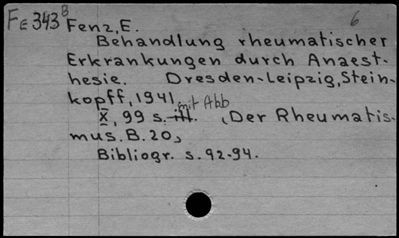 Fe 343 B 6
Fenz, E.
Behandlung rheumatischer
Erkrankungen durch Anaest-
hesie. Dresden-Leipzig, Stein-
kopff, 1941. mit Abb
X, 99 s. ill. (Der Rheumatis-
mus. B. 20)
Bibliogr. s. 92-94.